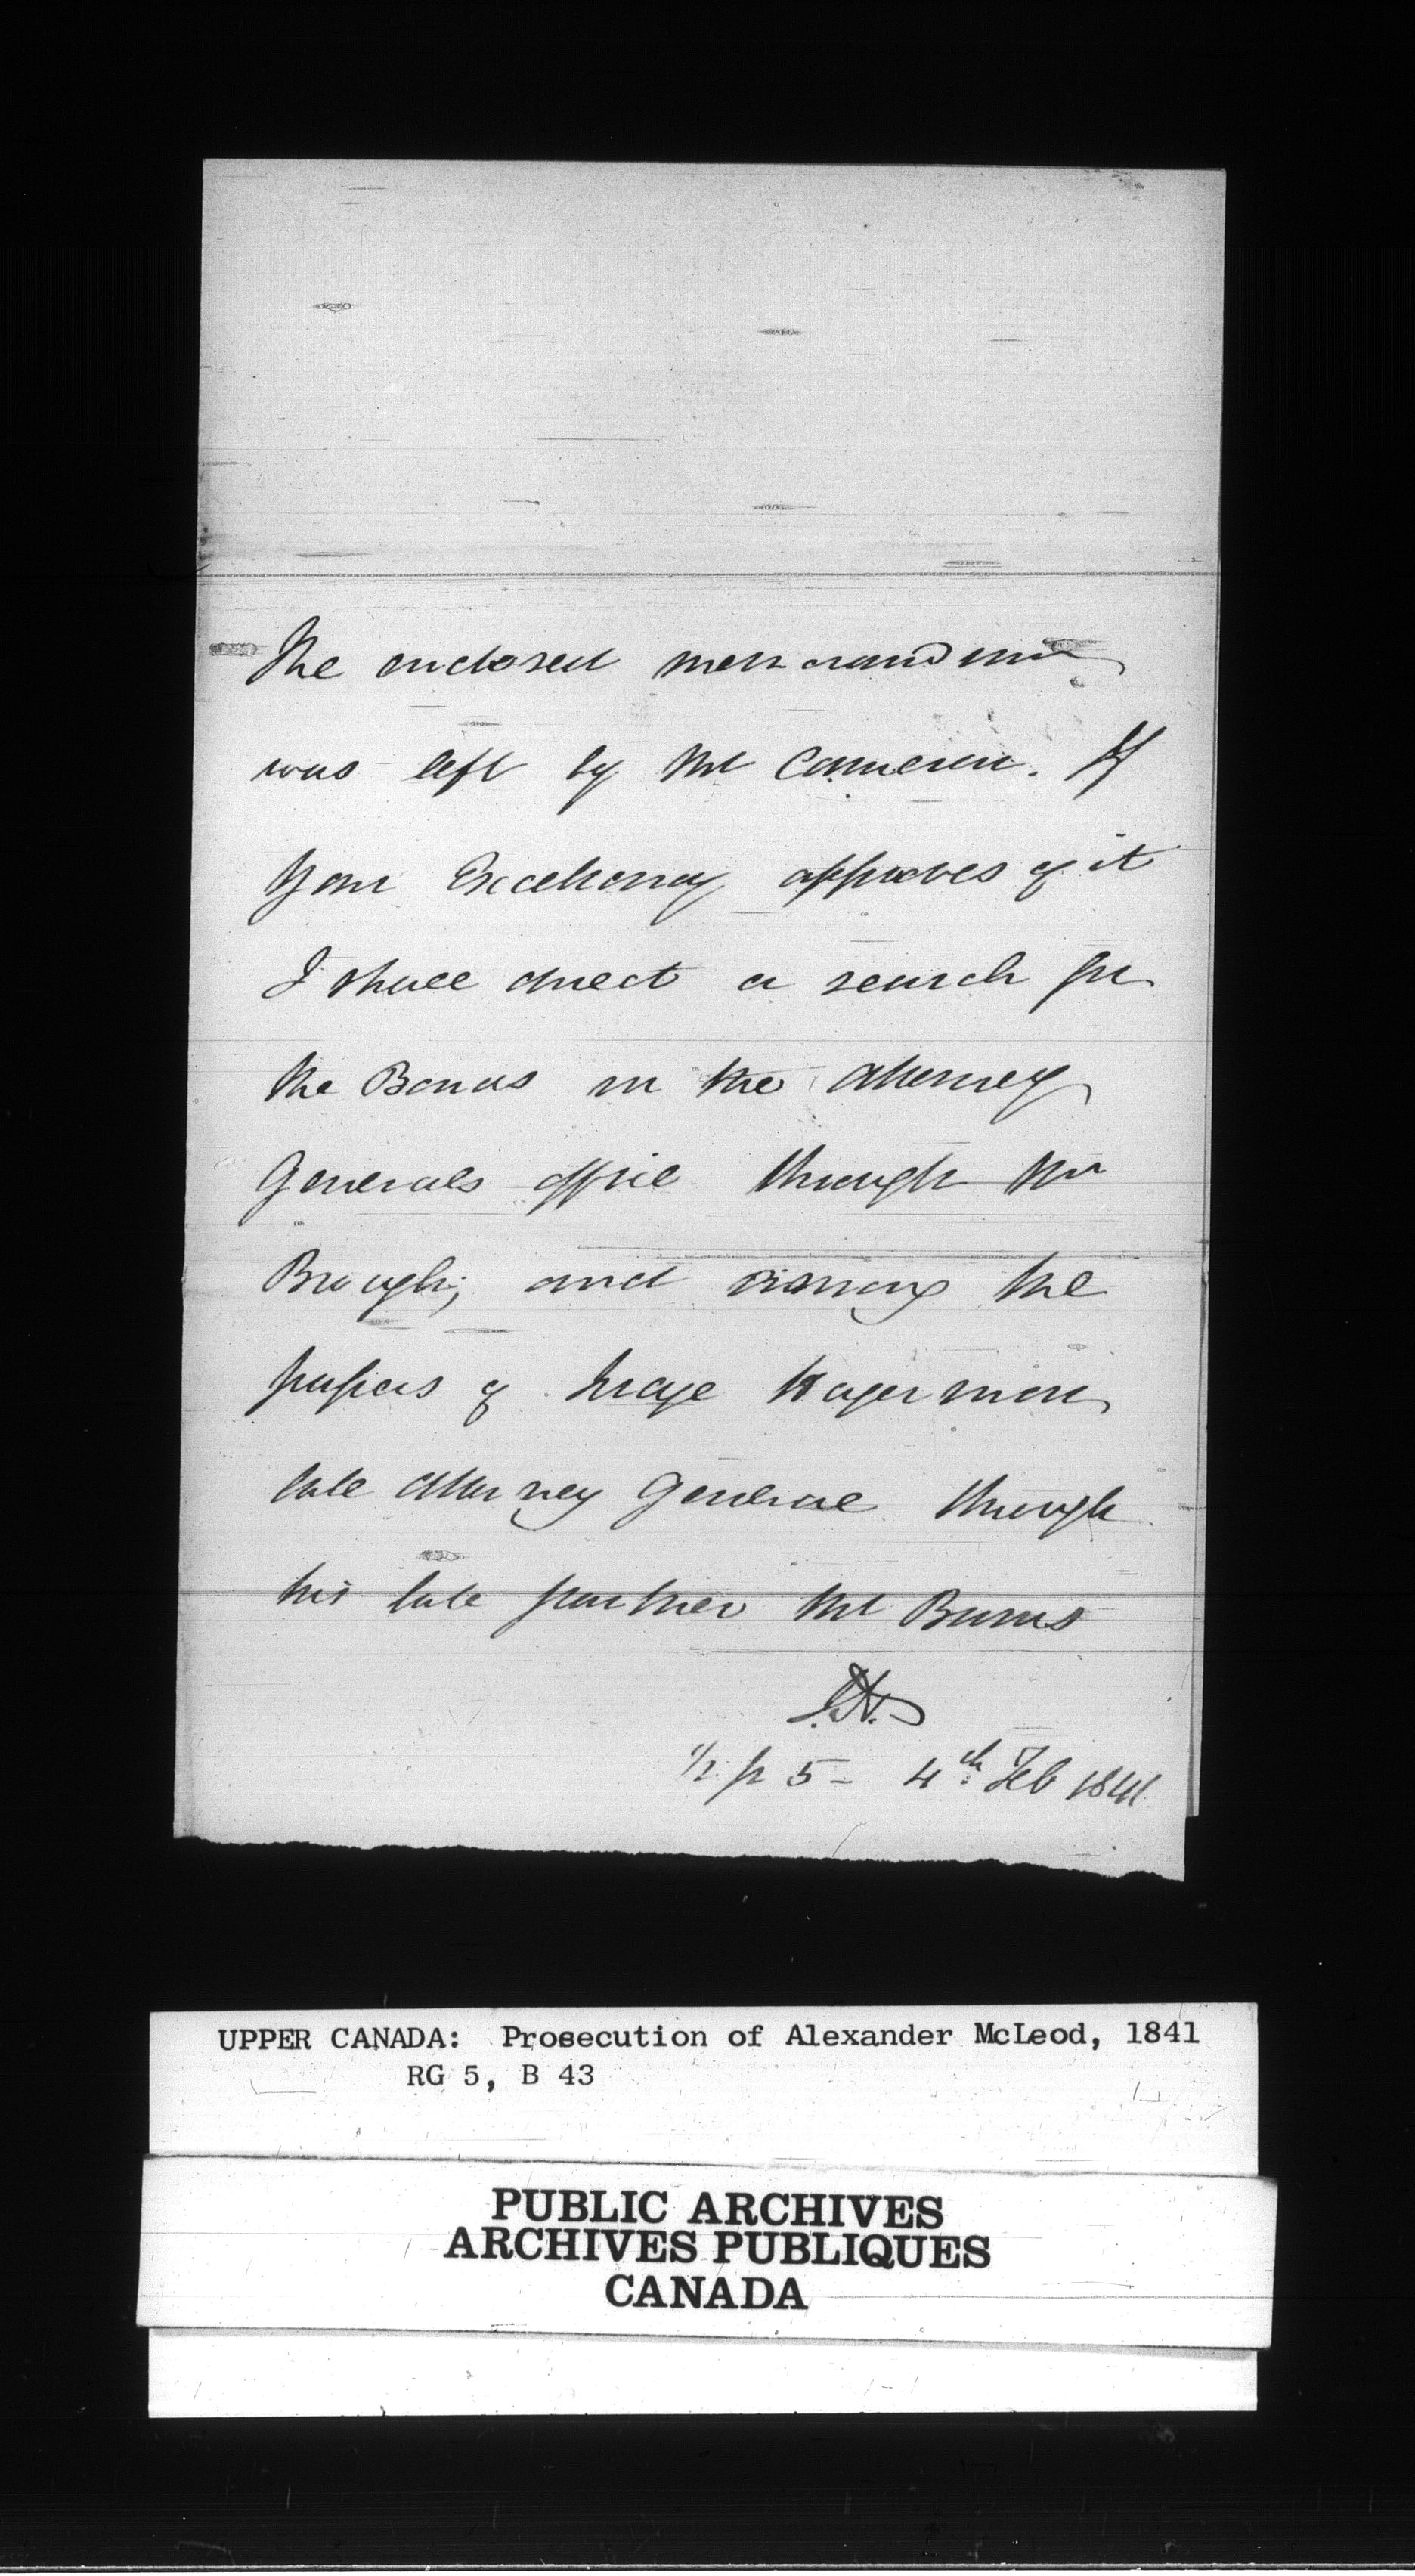 The enclosed memorandum
was left by Mr Cameron. If
Your Excellency approves of it
I shall direct a search for
the Bonds in the Attorney
Generals office through Mr
Brough; and among the
papers of Judge Hagerman
late Attorney General through
his late partner Mr Burns
1/2 p 5 - 4th Feb 1841
UPPER CANADA: Prosecution of Alexander McLeod, 1841
RG 5, B 43
PUBLIC ARCHIVES
ARCHIVES PUBLIQUES
CANADA